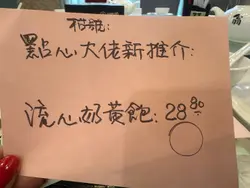 點心大佬新推介:
流心奶黃飽: 28.80